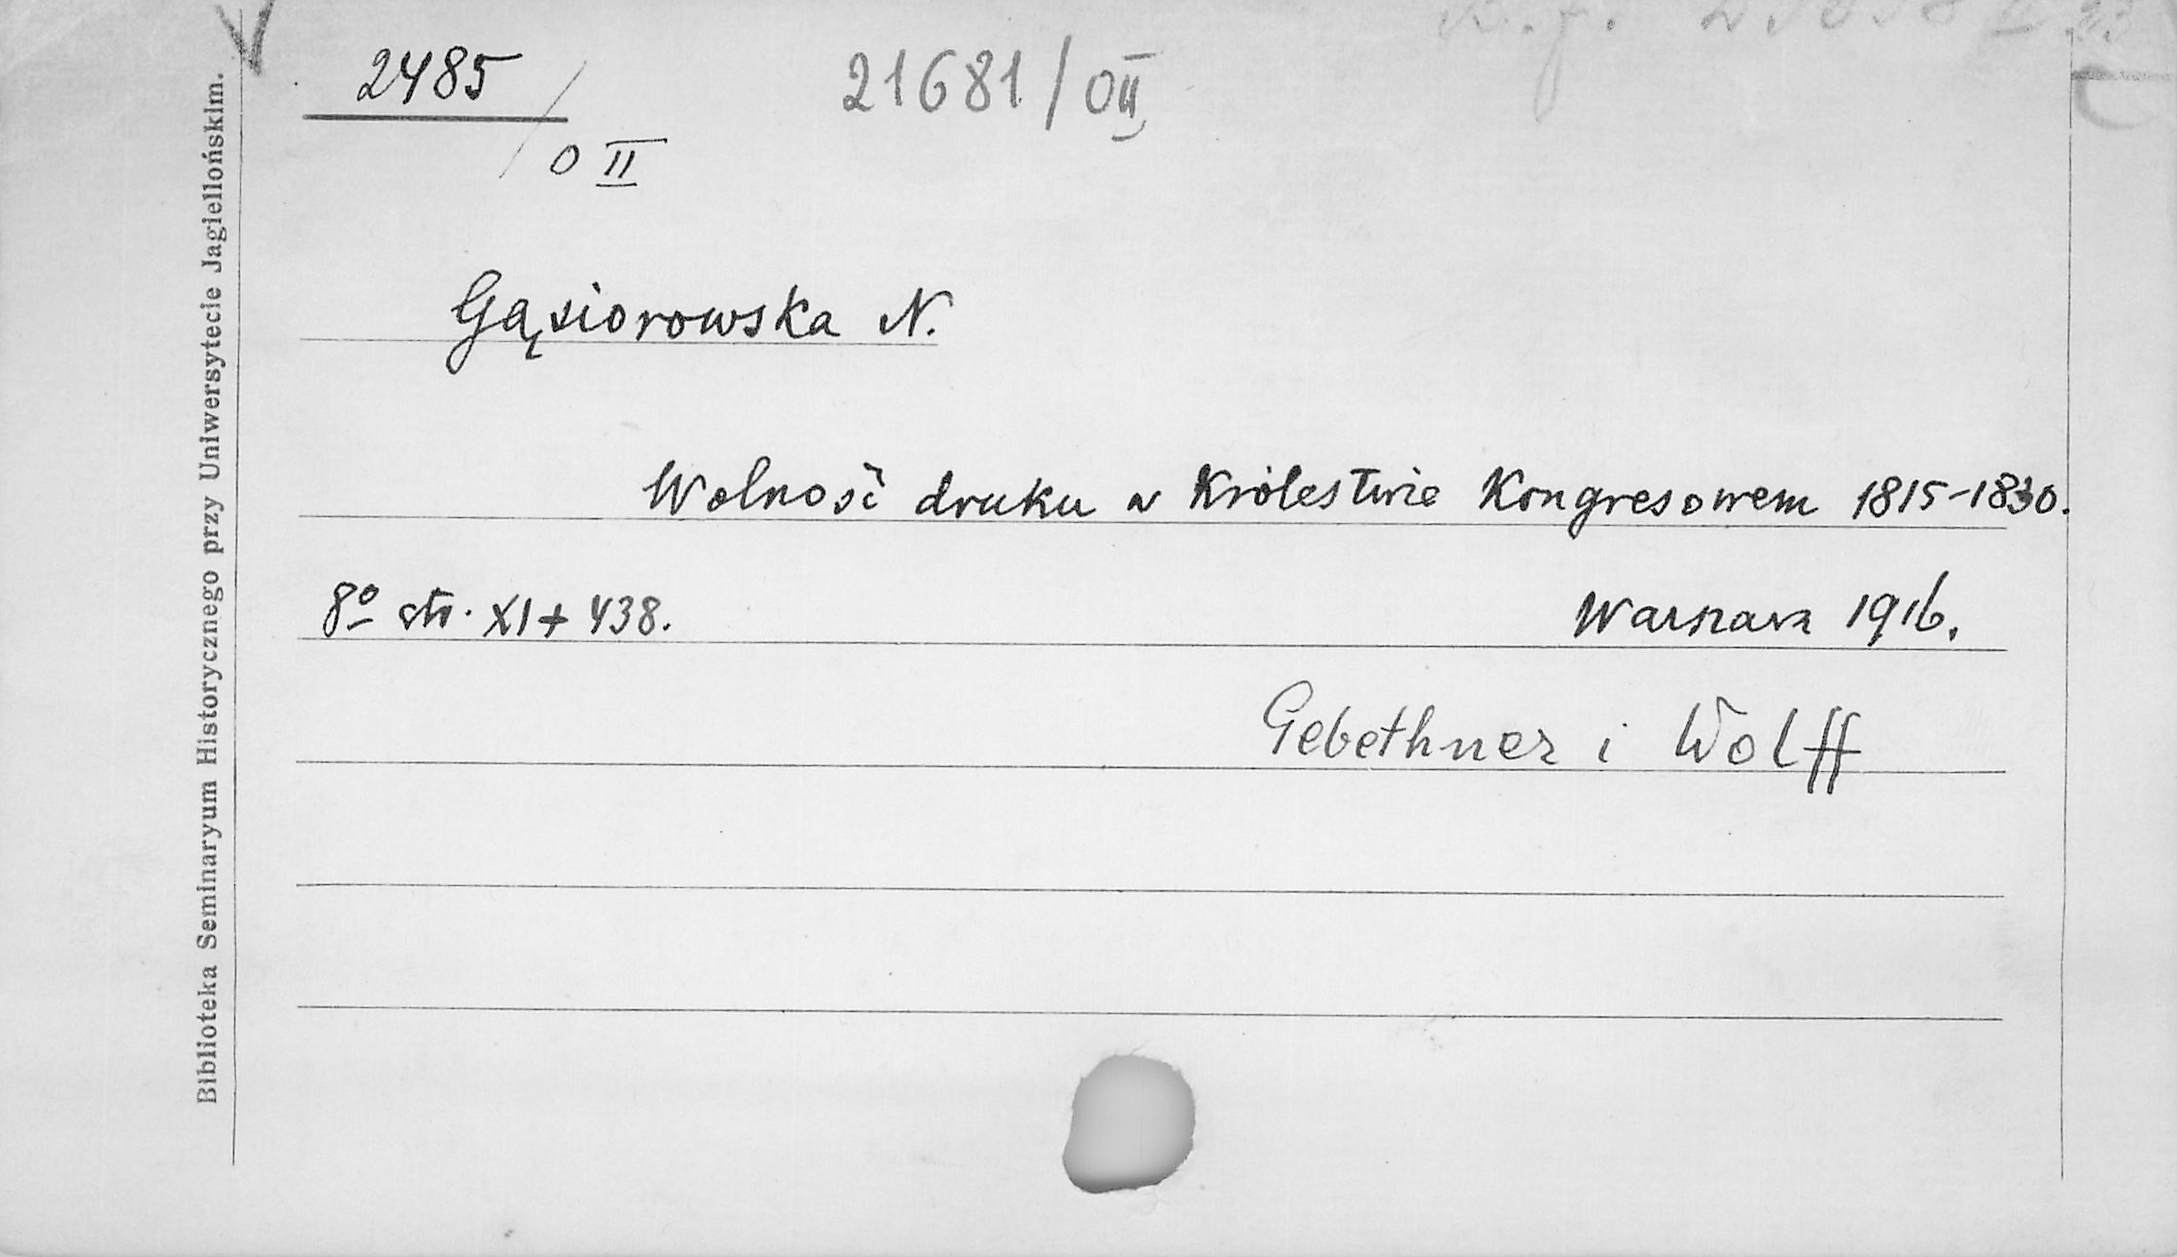 2485 / O II
21681 / OII
Gąsiorowska N.
Wolność druku w Królestwie Kongresowem 1815-1830.
8º str. XI + 438.
Warszawa 1916.
Gebethner i Wolff
Biblioteka Seminaryum Historycznego przy Uniwersytecie Jagiellońskim.